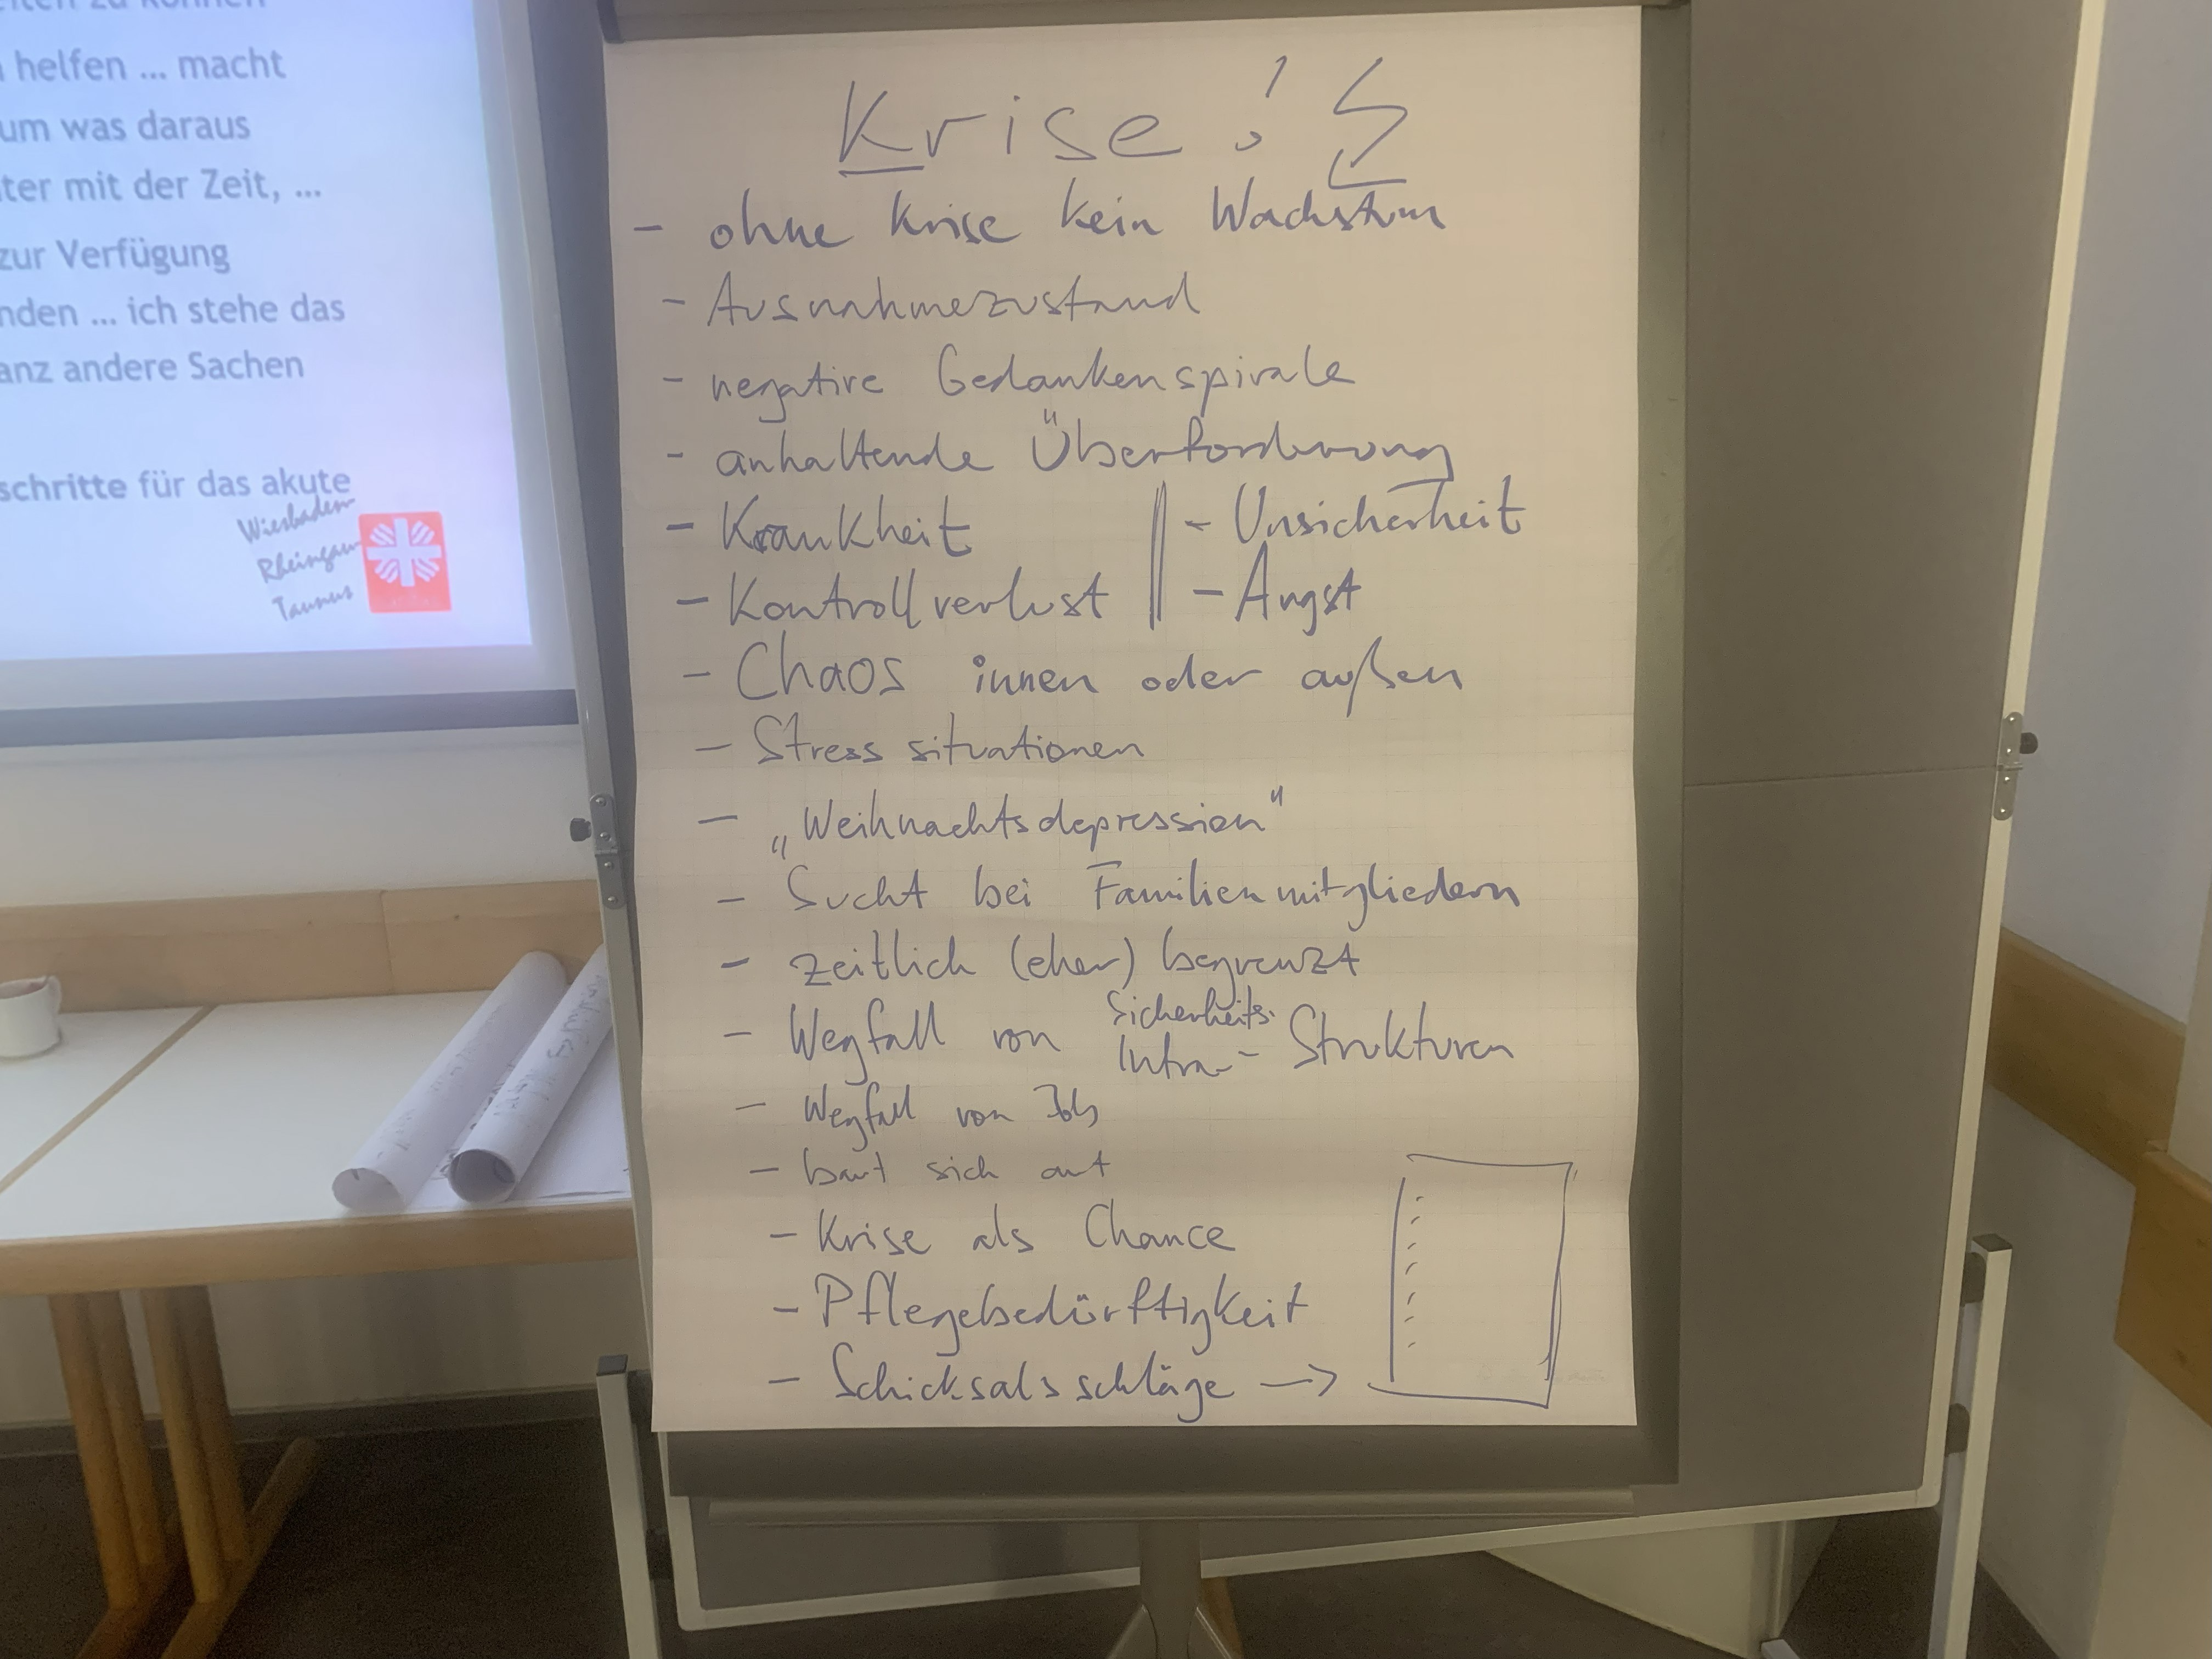 helfen ... macht
um was daraus
ter mit der Zeit, ...
zur Verfügung
nden ... ich stehe das
anz andere Sachen
schritte für das akute
Wiesbaden
Rheingau
Taunus
Krise!
- ohne Krise kein Wachstum
- Ausnahmezustand
- negative Gedankenspirale
- anhaltende Überforderung
- Krankheit - Unsicherheit
- Kontrollverlust - Angst
- Chaos innen oder außen
- Stresssituationen
- „Weihnachtsdepression"
- Sucht bei Familienmitgliedern
- zeitlich (eher) begrenzt
Sicherheits-
- Wegfall von Infra- Strukturen
- Wegfall von Job
- baut sich auf
- Krise als Chance
- Pflegebedürftigkeit
- Schicksalsschläge →